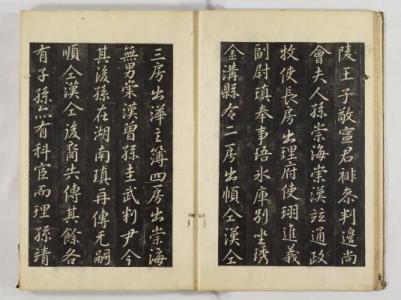 陵王子敬寧君裶參判邊尚
會夫人孫崇海崇漢竝通政
牧使長房出理府使珝進義
副尉瑱奉事琣氷庫別坐琇
金溝縣令二房出順仝漢仝
三房出澕主簿四房出崇海
無男崇漢曾孫圭武判尹今
其後孫在湖南瑱再傳无嗣
順仝漢仝後裔共傳其餘各
有子孫亦有科宦而理孫靖